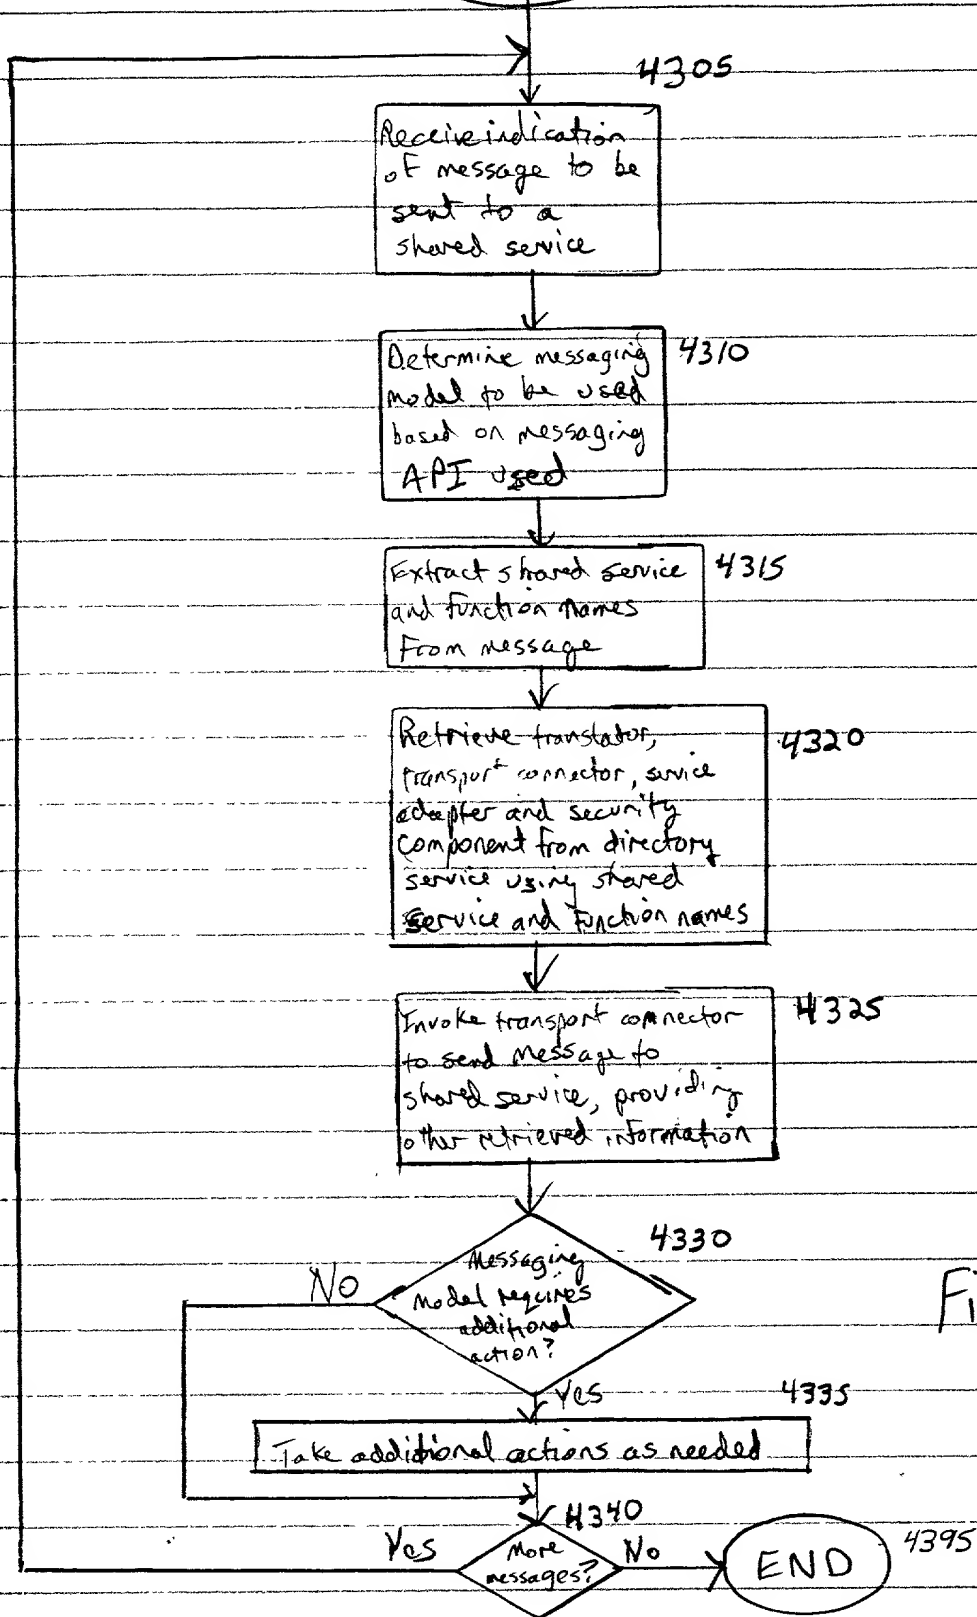 4305
Receive indication
of message to be
sent to a
shared service
4310
Determine messaging
model to be used
based on messaging
API used
4315
Extract shared service
and function names
from message
4320
Retrieve translator,
transport connector, service
adapter and security
component from directory
service using shared
service and function names
4325
Invoke transport connector
to send message to
shared service, providing
other retrieved information
4330
Messaging
model requires
additional
action?
No
Fi
Yes
4335
Take additional actions as needed
4340
More
messages?
Yes
No
END
4395